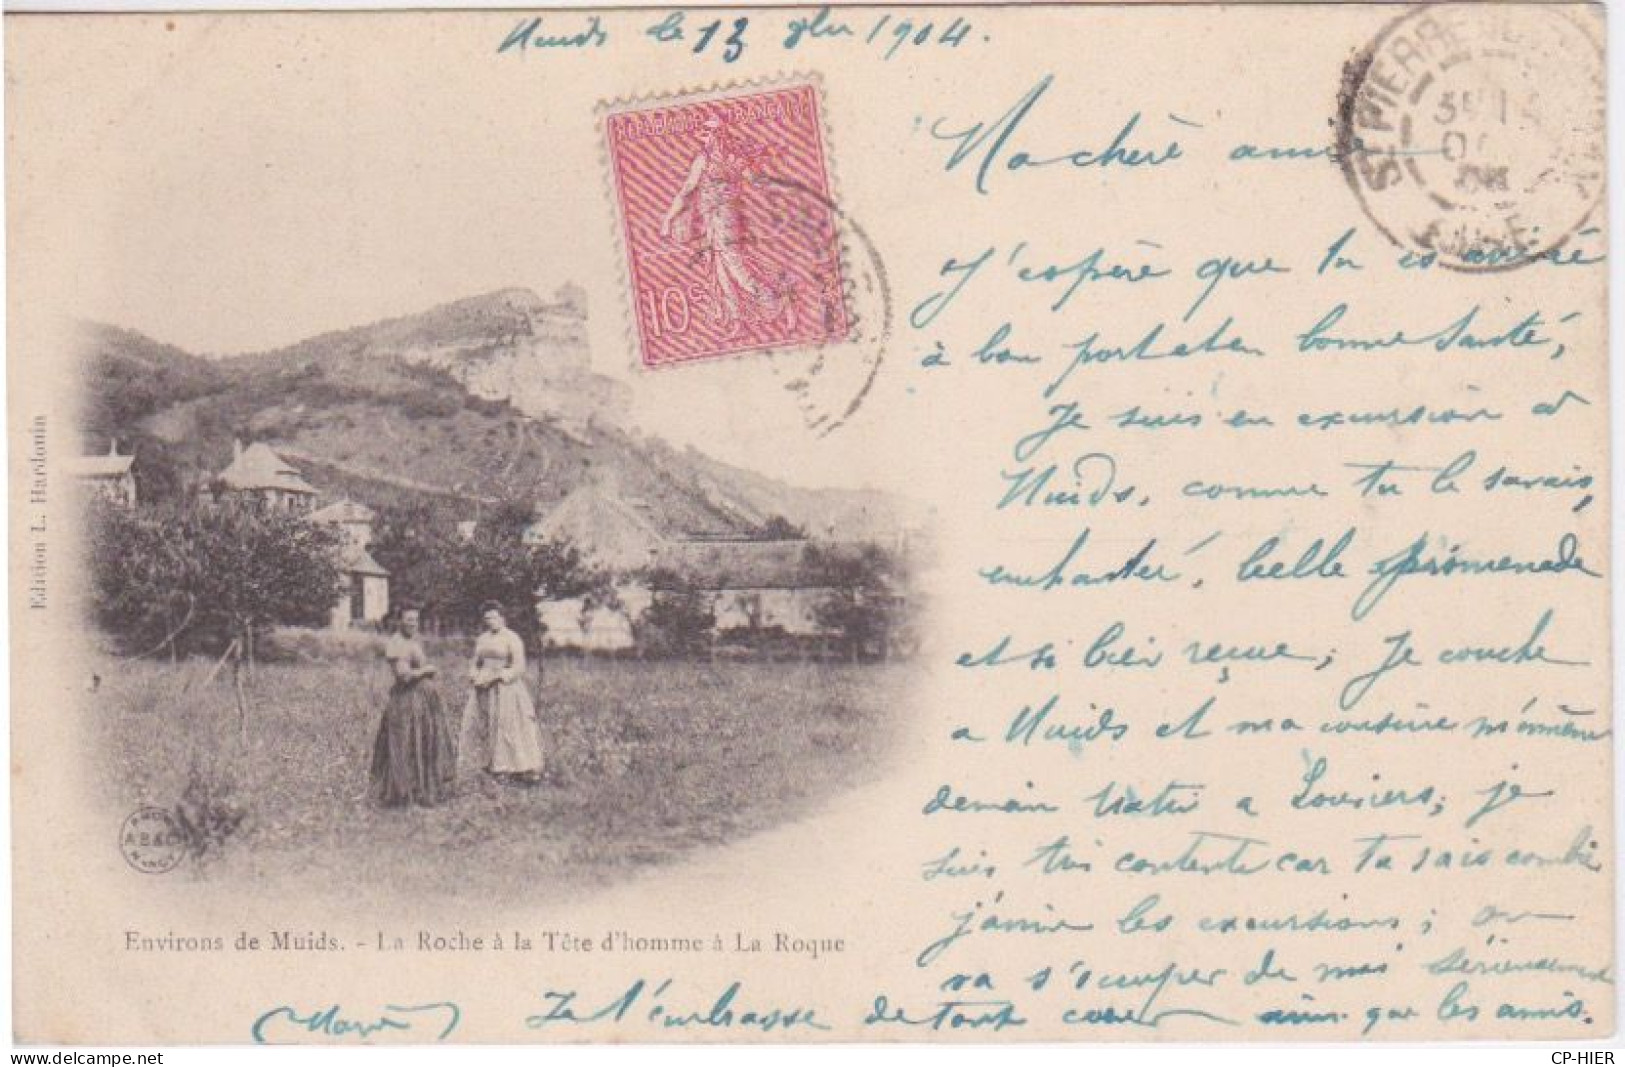 Muids le 13 1904.
REPUBLIQUE FRANÇAISE
10c
ST PIERRE
EURE
Ma chère amie
J'espère que tu es arrivé
à bon port et en bonne santé,
Je suis en excursion à
Muids, comme tu le savais,
enchanté, belle promenade
et si bien reçue; Je couche
a Muids et ma cousine m'emmène
demain matin a Louviers; je
suis très contente car tu sais combien
j'aime les excursions; on
va s'occuper de moi sérieusement
Je t'embrasse de tout coeur ainsi que les amis.
(Marie)
Edition L. Hardouin
AB&C
NANCY
Environs de Muids. - La Roche à la Tête d'homme à La Roque
CP-HIER